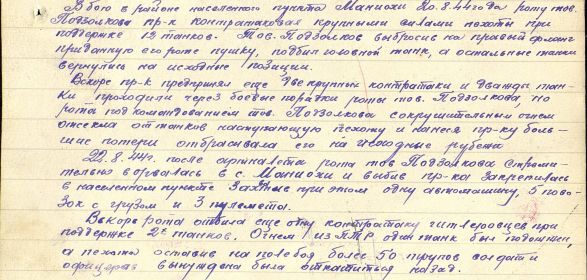 В бою в районе населенного пункта Маниохи 20.8.44 года роту тов.
Подзолкова пр-к контратаковал крупными силами пехоты при
поддержке 12 танков. Тов. Подзолков выбросив на правый фланг
приданную его роте пушку, подбил головной танк, а остальные танки
вернулись на исходные позиции.
Вскоре пр-к предпринял еще две крупных контратаки и дважды тан-
ки проходили через боевые порядки роты тов. Подзолкова, но
рота под командованием тов. Подзолкова сокрушительным огнем
отсекла от танков наступающую пехоту и нанеся пр-ку боль-
шие потери отбрасывала его на исходные рубежи
22.8.44г. после артналета рота тов Подзолкова стреми-
тельно ворвалась в с. Маниохи и выбив пр-ка закрепилась
в населенном пункте захватив при этом одну автомашину, 5 пово-
зок с грузом и 3 пулемета.
Вскоре рота отбила еще одну контратаку гитлеровцев при
поддержке 2х танков. Огнем из ПТР один танк был подожжен,
а пехота оставив на поле боя более 50 трупов солдат и
офицеров вынуждена была откатится назад.